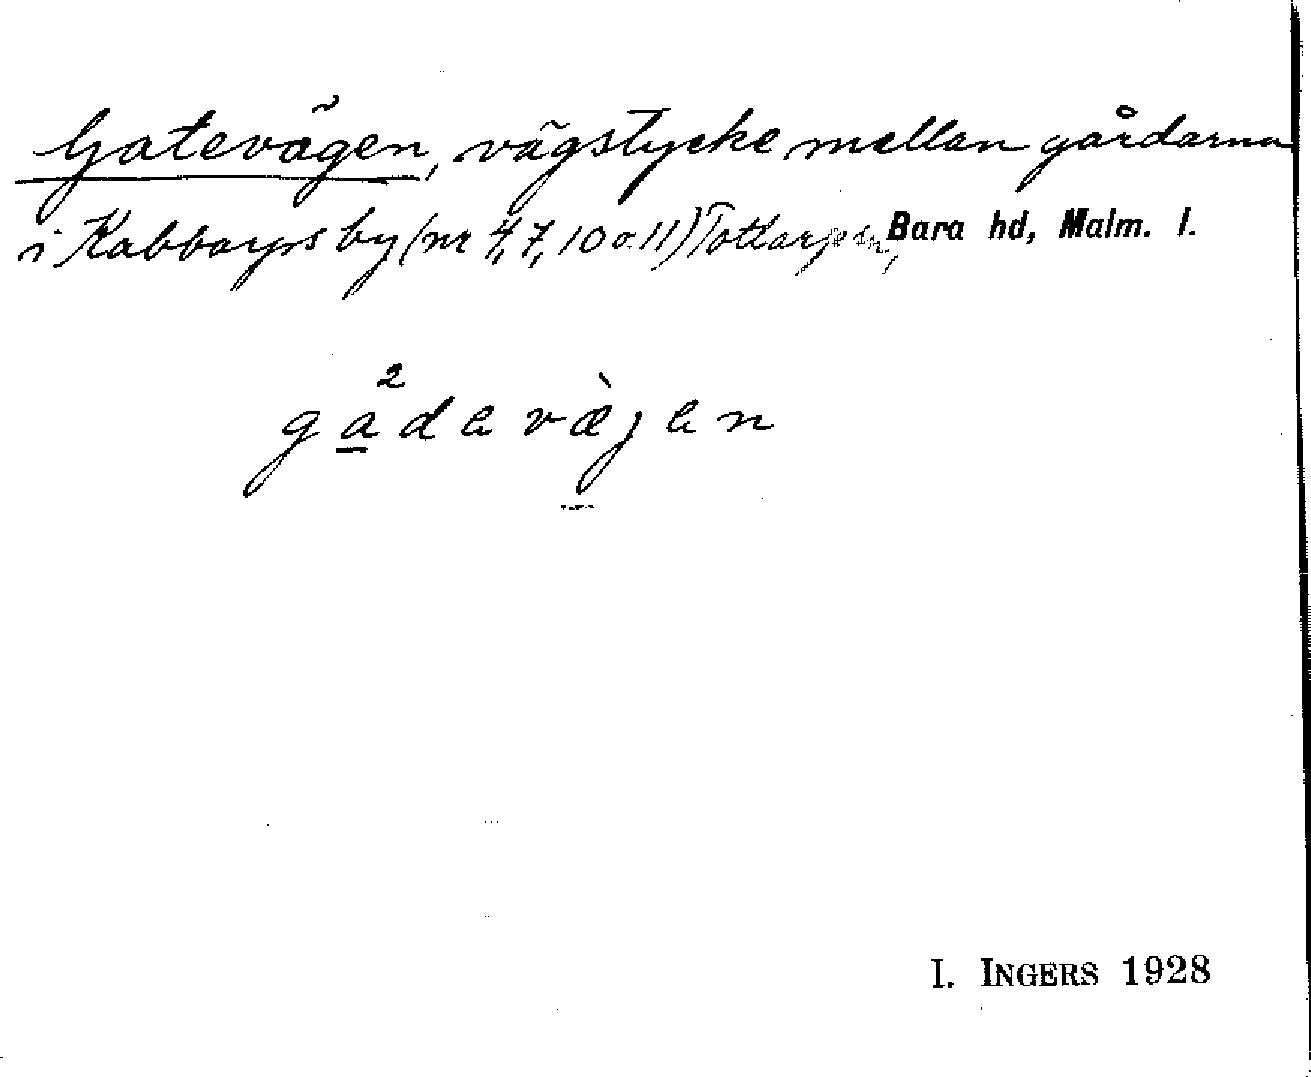 Gatevägen, vägstycke mellan gårdarna
i Kabbarps by (nr 4, 7, 10 o. 11) Tottarps sn, Bara hd, Malm. l.
ga²devæ̀jen
I. INGERS 1928